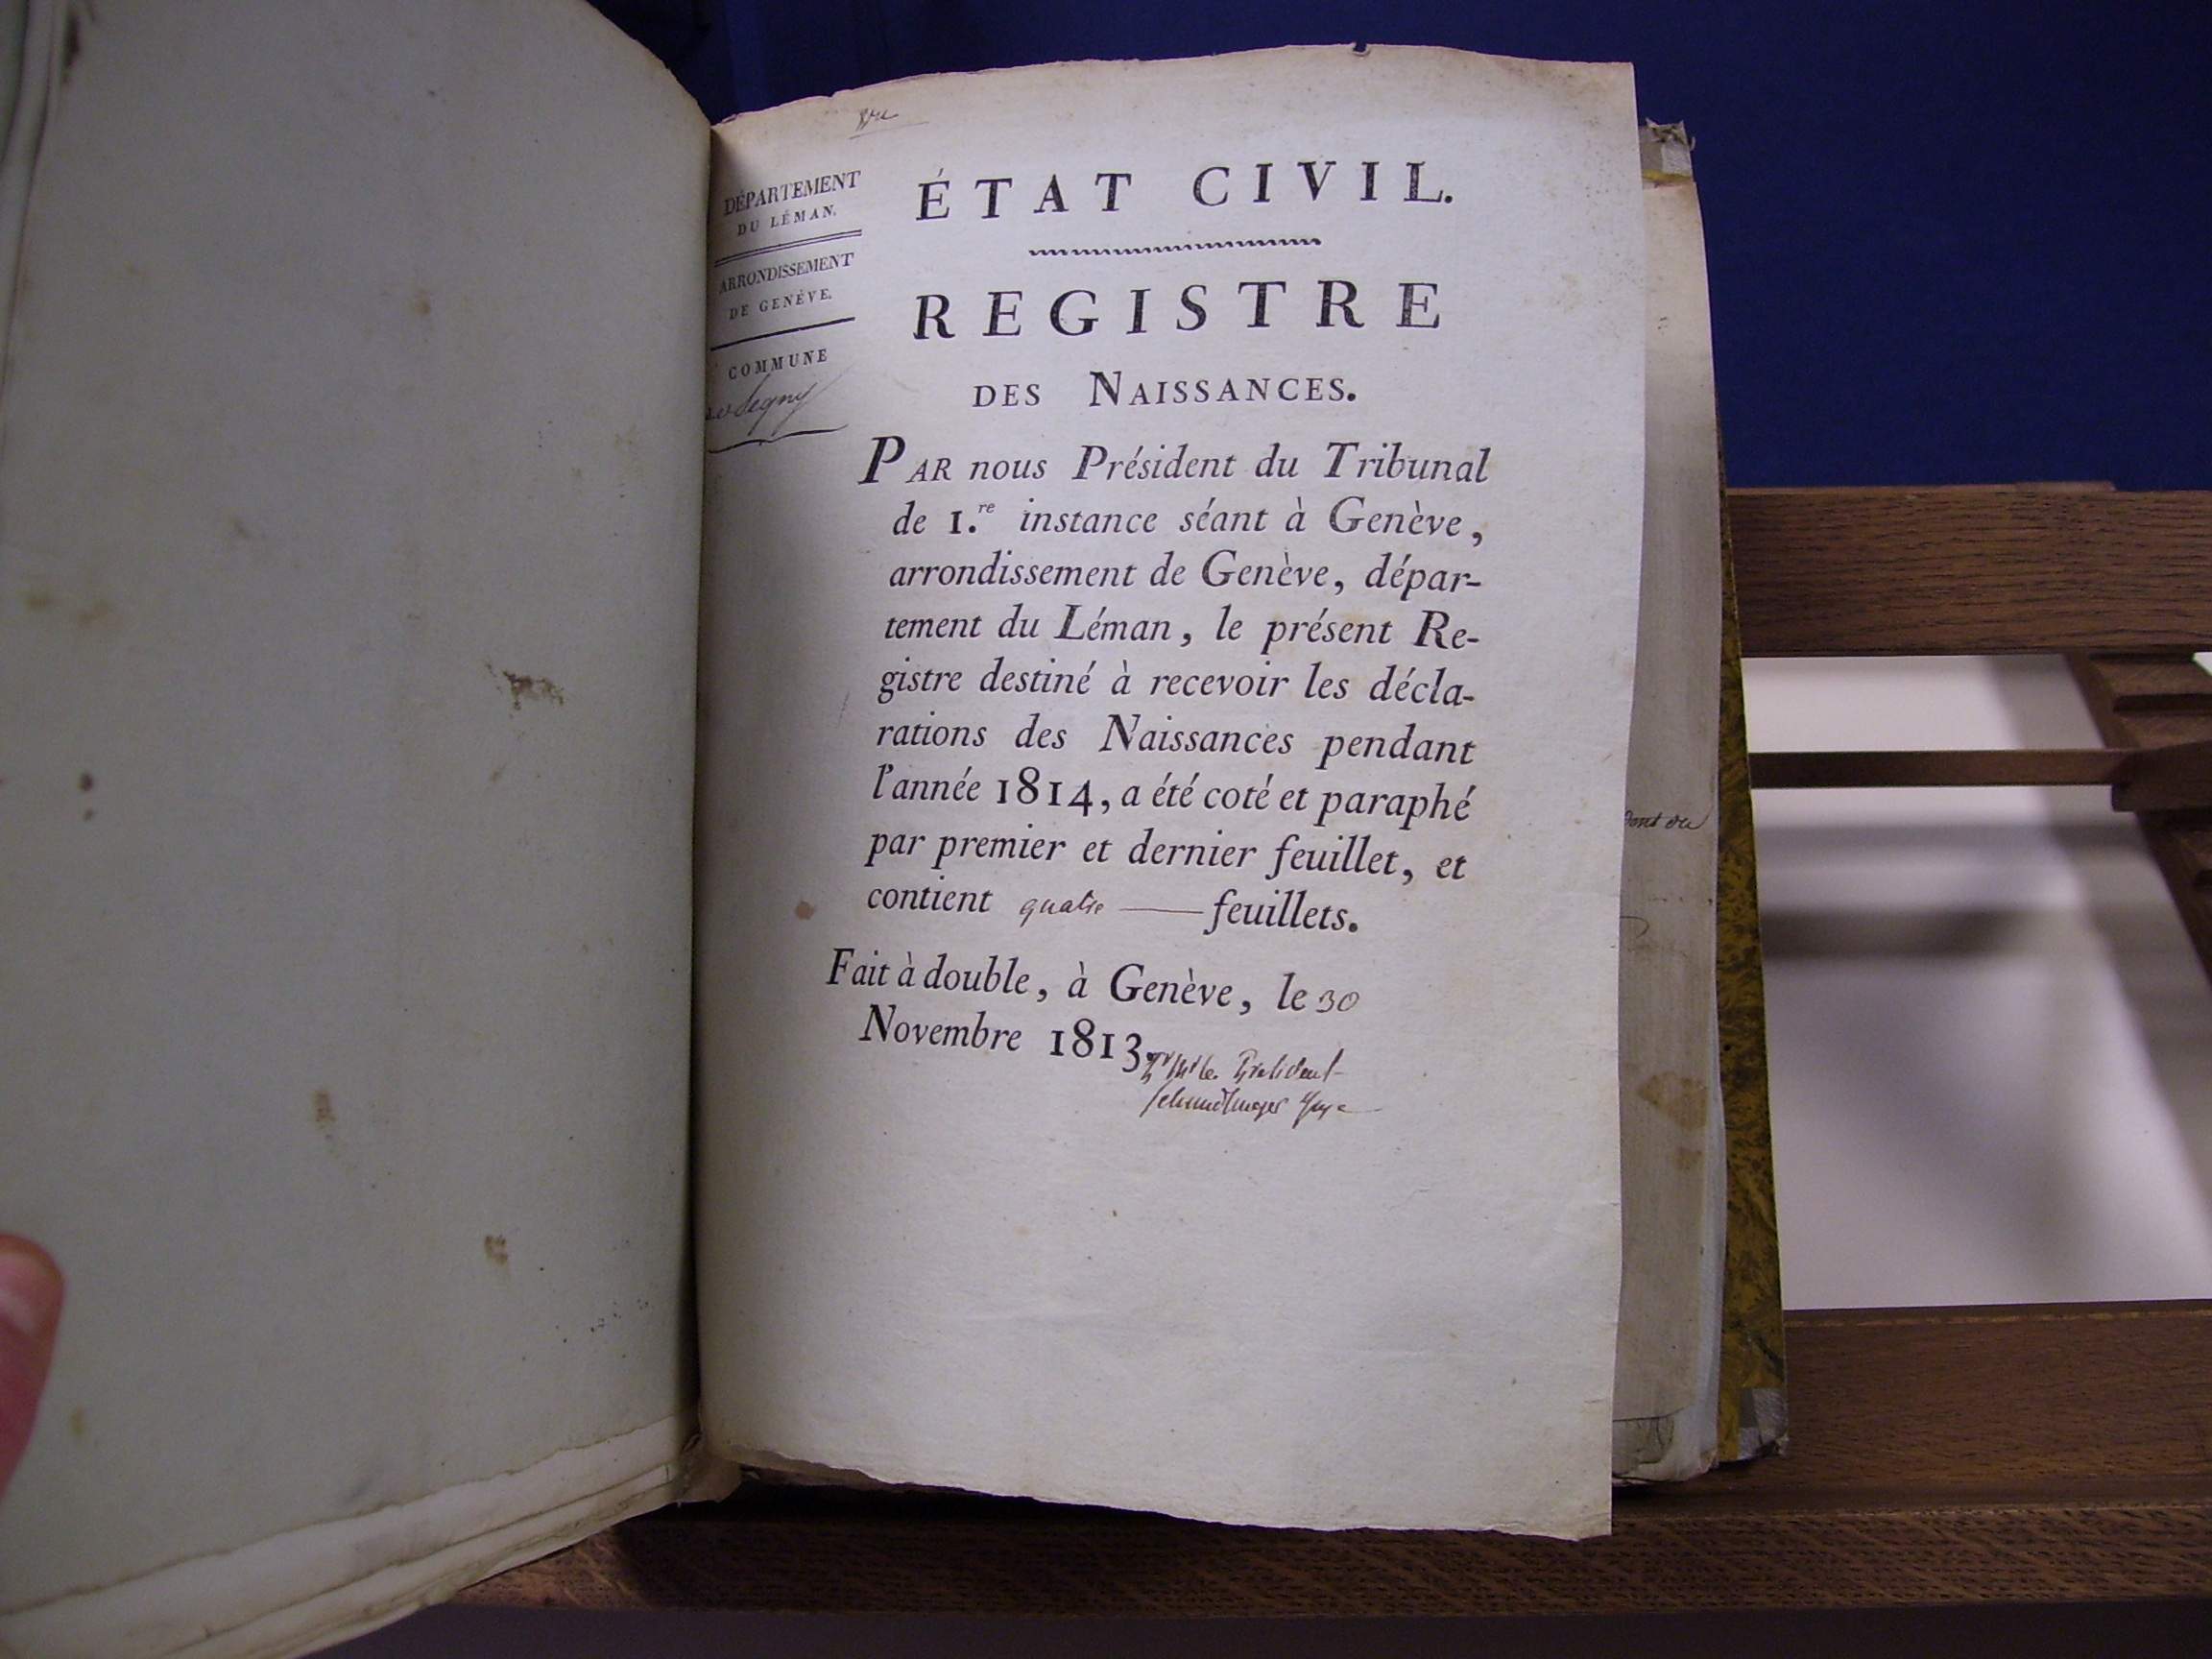 DÉPARTEMENT
DU LÉMAN.
ARRONDISSEMENT
DE GENÈVE.
COMMUNE
de Segny
ÉTAT CIVIL.
REGISTRE
DES NAISSANCES.
PAR nous Président du Tribunal
de 1.re instance séant à Genève,
arrondissement de Genève, dépar-
tement du Léman, le présent Re-
gistre destiné à recevoir les décla-
rations des Naissances pendant
l'année 1814, a été coté et paraphé
par premier et dernier feuillet, et
contient quatre feuillets.
Fait à double, à Genève, le 30
Novembre 1813.
le Président